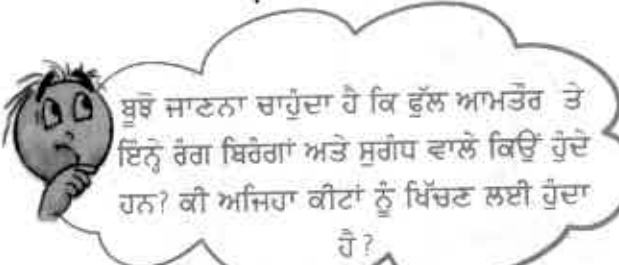 ਬੂਝੋ ਜਾਣਨਾ ਚਾਹੁੰਦਾ ਹੈ ਕਿ ਫੁੱਲ ਆਮਤੌਰ ਤੇ
ਇੰਨੇ ਰੰਗ ਬਿਰੰਗਾਂ ਅਤੇ ਸੁਗੰਧ ਵਾਲੇ ਕਿਉਂ ਹੁੰਦੇ
ਹਨ? ਕੀ ਅਜਿਹਾ ਕੀਟਾਂ ਨੂੰ ਖਿੱਚਣ ਲਈ ਹੁੰਦਾ
ਹੈ ?